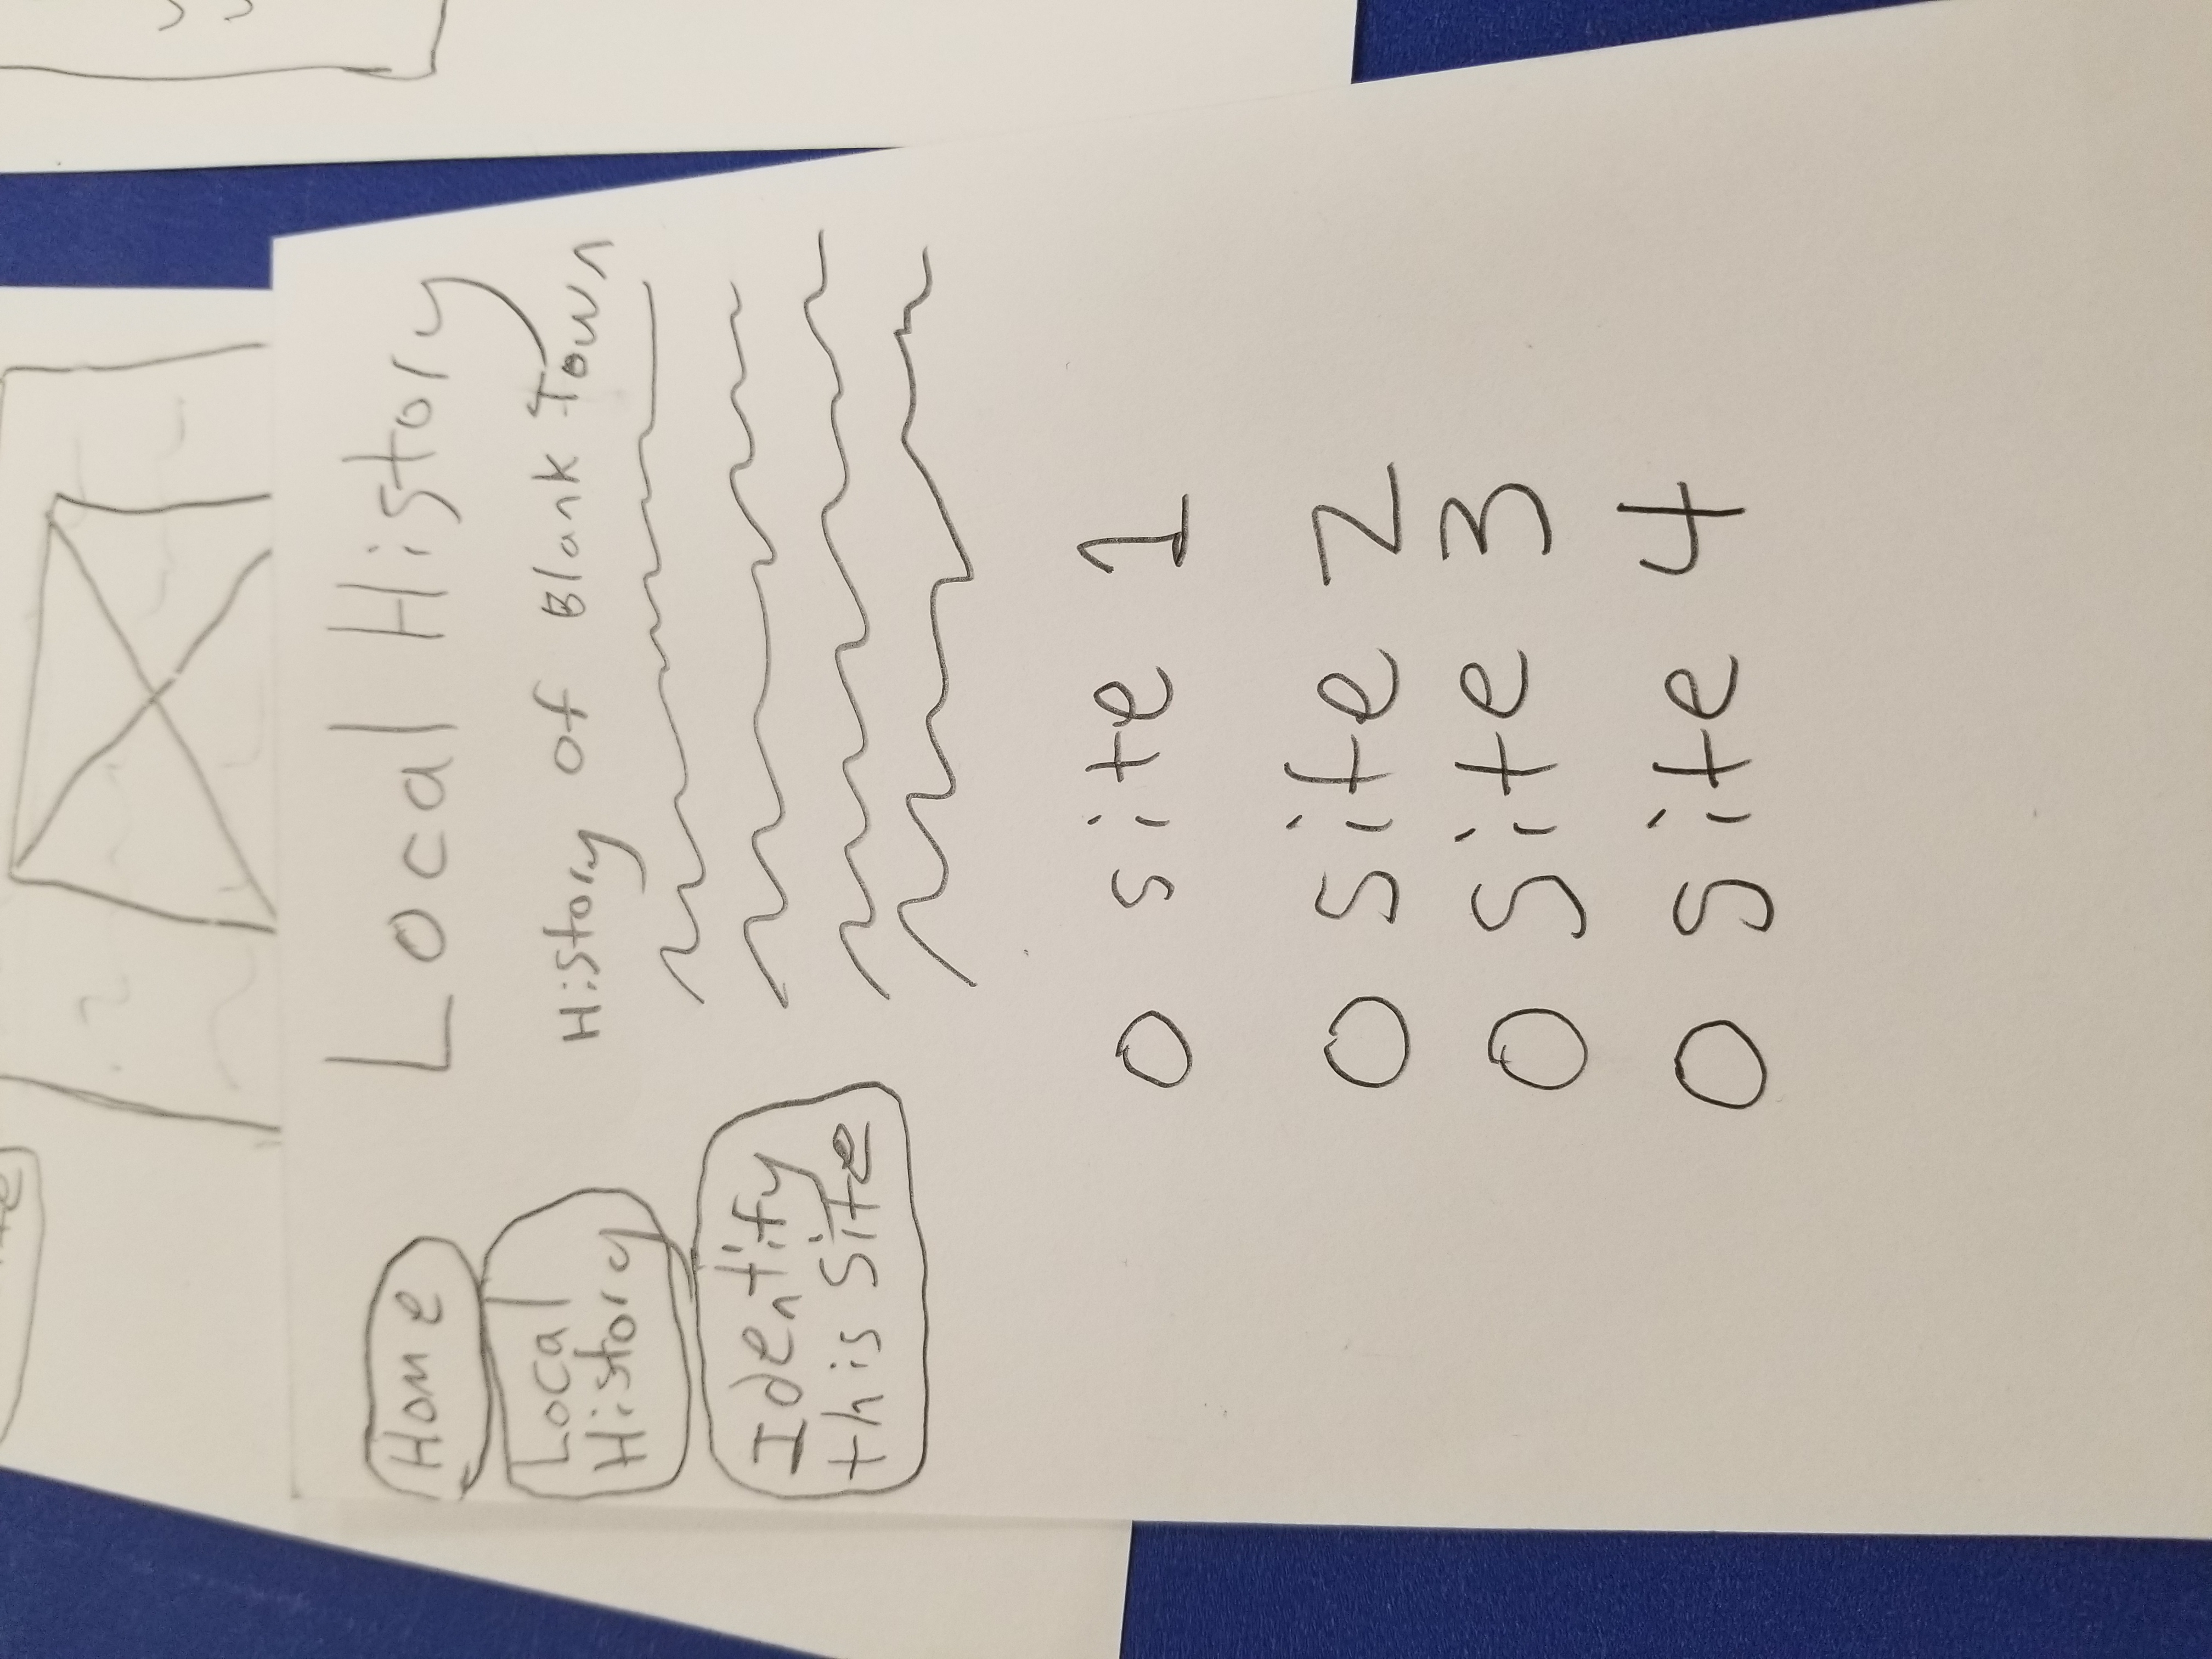 Home
Local
History
Identify
this Site
Local History
History of Blank Town
site 1
site 2
site 3
site 4